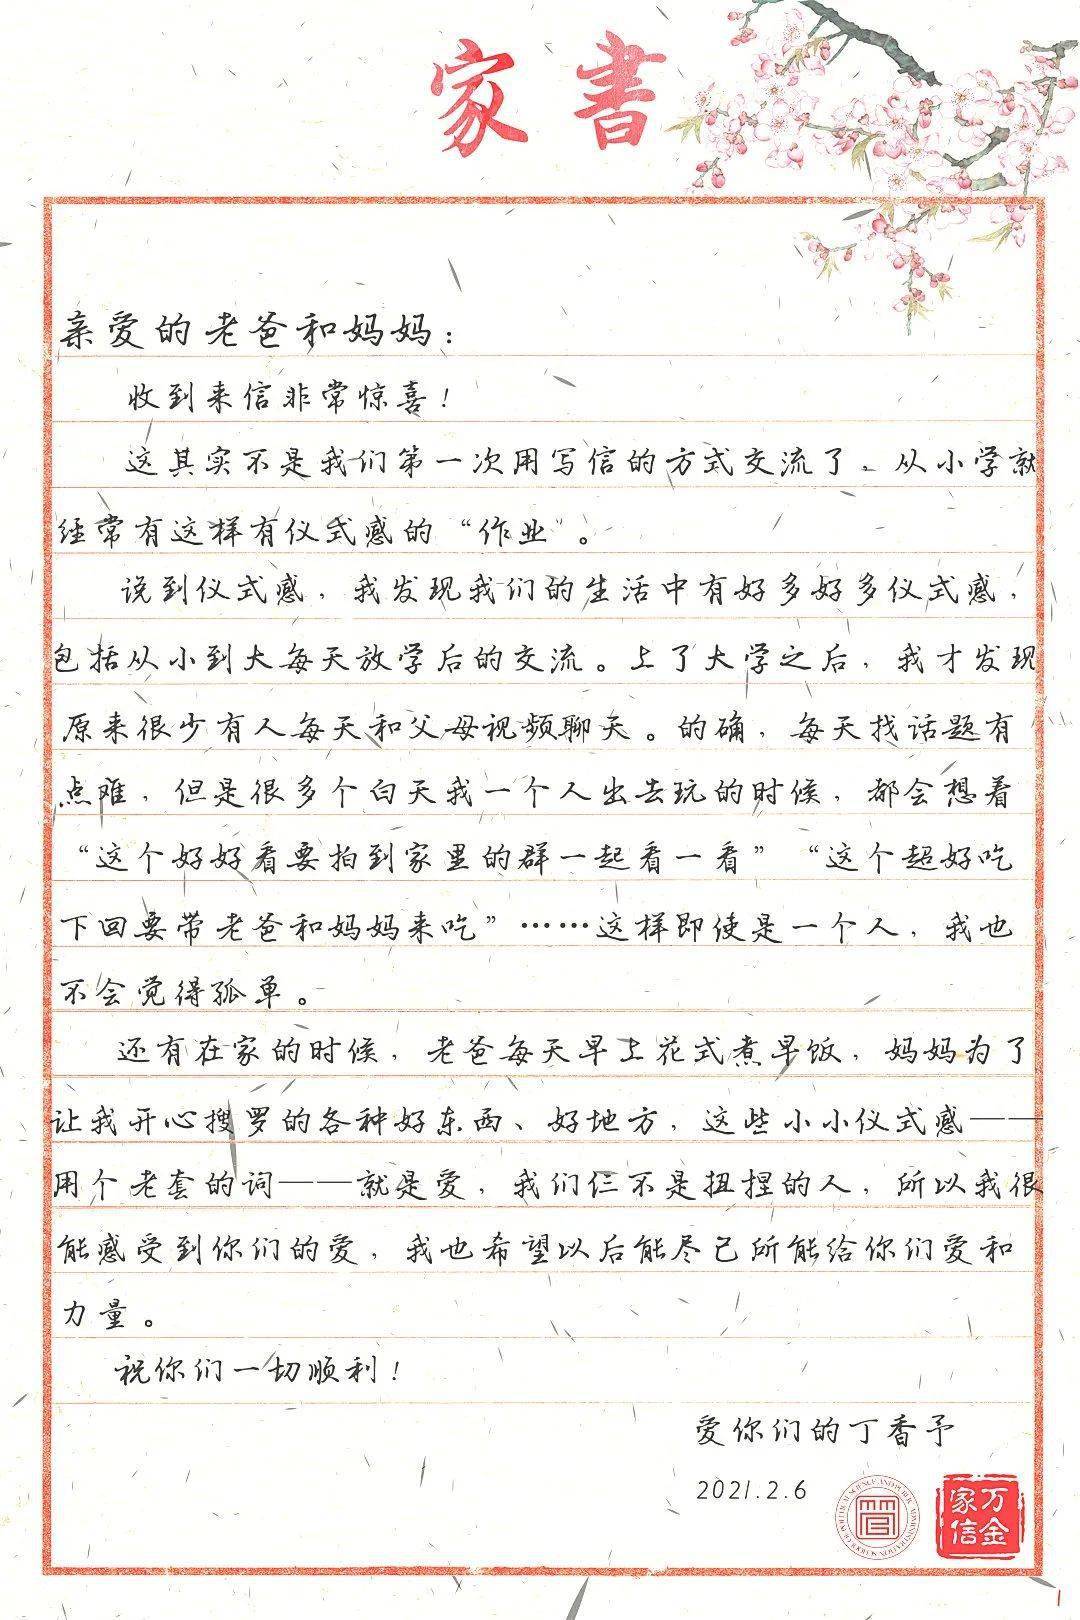 家書
亲爱的老爸和妈妈：
收到来信非常惊喜！
这其实不是我们第一次用写信的方式交流了。从小学就
经常有这样有仪式感的“作业”。
说到仪式感，我发现我们的生活中有好多好多仪式感，
包括从小到大每天放学后的交流。上了大学之后，我才发现
原来很少有人每天和父母视频聊天。的确，每天找话题有
点难，但是很多个白天我一个人出去玩的时候，都会想着
“这个好好看要拍到家里的群一起看一看”“这个超好吃
下回要带老爸和妈妈来吃”……这样即使是一个人，我也
不会觉得孤单。
还有在家的时候，老爸每天早上花式煮早饭，妈妈为了
让我开心搜罗的各种好东西、好地方，这些小小仪式感——
用个老套的词——就是爱，我们仨不是扭捏的人，所以我很
能感受到你们的爱，我也希望以后能尽己所能给你们爱和
力量。
祝你们一切顺利！
爱你们的丁香予
2021.2.6
SCHOOL OF POLITICAL SCIENCE AND PUBLIC ADMINISTRATION
万金
家信
1